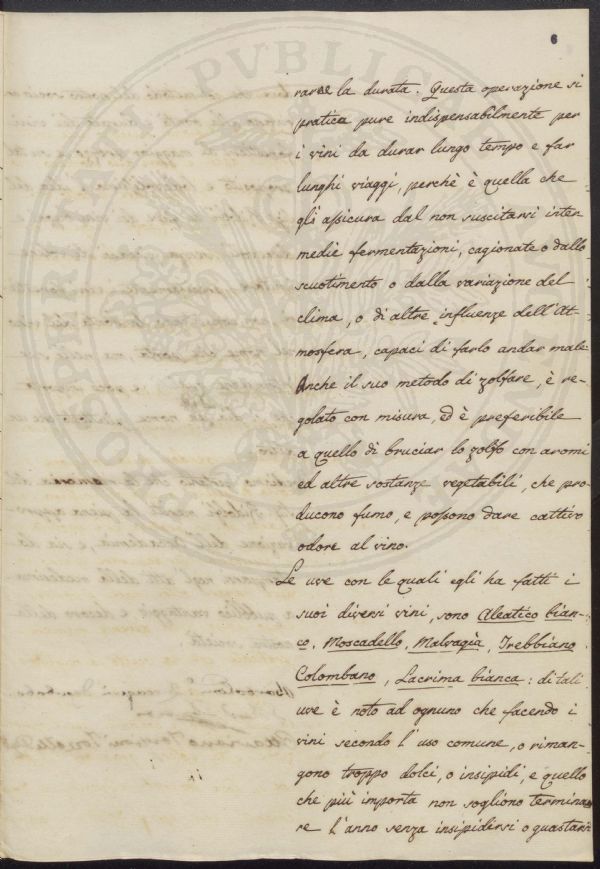 6
rarne la durata. Questa operazione si
pratica pure indispensabilmente per
i vini da durar lungo tempo e far
lunghi viaggi, perchè è quella che
gli assicura dal non suscitarsi inter
medie fermentazioni, cagionate o dallo
scuotimento o dalla variazione del
clima, o di altre influenze dell'At-
mosfera, capaci di farlo andar male.
Anche il suo metodo di zolfare, è re-
golato con misura, ed è preferibile
a quello di bruciar lo zolfo con aromi
ed altre sostanze vegetabili, che pro-
ducono fumo, e possono dare cattivo
odore al vino.
Le uve con le quali egli ha fatti i
suoi diversi vini, sono Aleatico bian-
co, Moscadello, Malvagìa, Trebbiano
Colombano, Lacrima bianca: di tali
uve è noto ad ognuno che facendo i
vini secondo l'uso comune, o riman-
gono troppo dolci, o insipidi, e quello
che più importa non sogliono termina
re l'anno senza insipidirsi o guastarsi